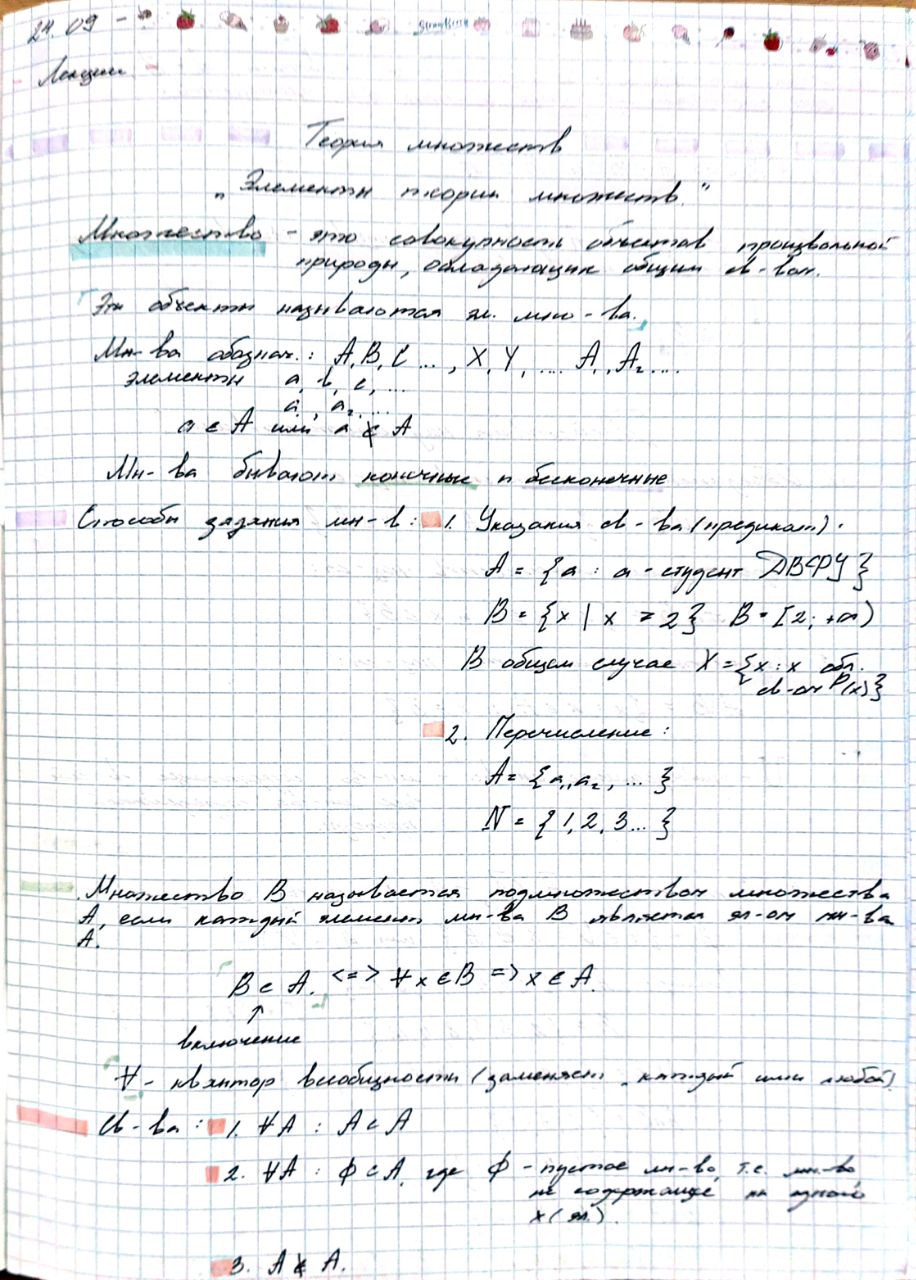 24.09
Лекции
Теория множеств
„Элементы теории множеств."
Множество - это совокупность объектов произвольной
природы, обладающих общим св-вом.
Эти объекты называются эл. мно-ва.
Мн-ва обознач.: A, B, C ..., X, Y, ... A₁, A₂ ...
элементы a, b, c, ...
a₁, a₂ ...
a ∈ A или a ∉ A
Мн-ва бывают конечные и бесконечные
Способы задания мн-в: 1. Указания св-ва (предикат).
A = {a : a - студент ДВФУ}
B = {x | x ≥ 2} B = [2; +∞)
В общем случае X = {x : x обл.
св-ом P(x)}
2. Перечисление:
A = {a₁, a₂, ... }
N = {1, 2, 3... }
Множество B называется подмножеством множества
A, если каждый элемент мн-ва B является эл-ом мн-ва
A.
B ⊂ A. <=> ∀x ∈ B => x ∈ A.
↑
включение
∀ - квантор всеобщности (заменяет „каждый или любой)
Св-ва: 1. ∀A : A ⊂ A
2. ∀A : ∅ ⊂ A, где ∅ - пустое мн-во, т.е. мн-во
не содержащее ни одного
x (эл.).
3. A ∉ A.